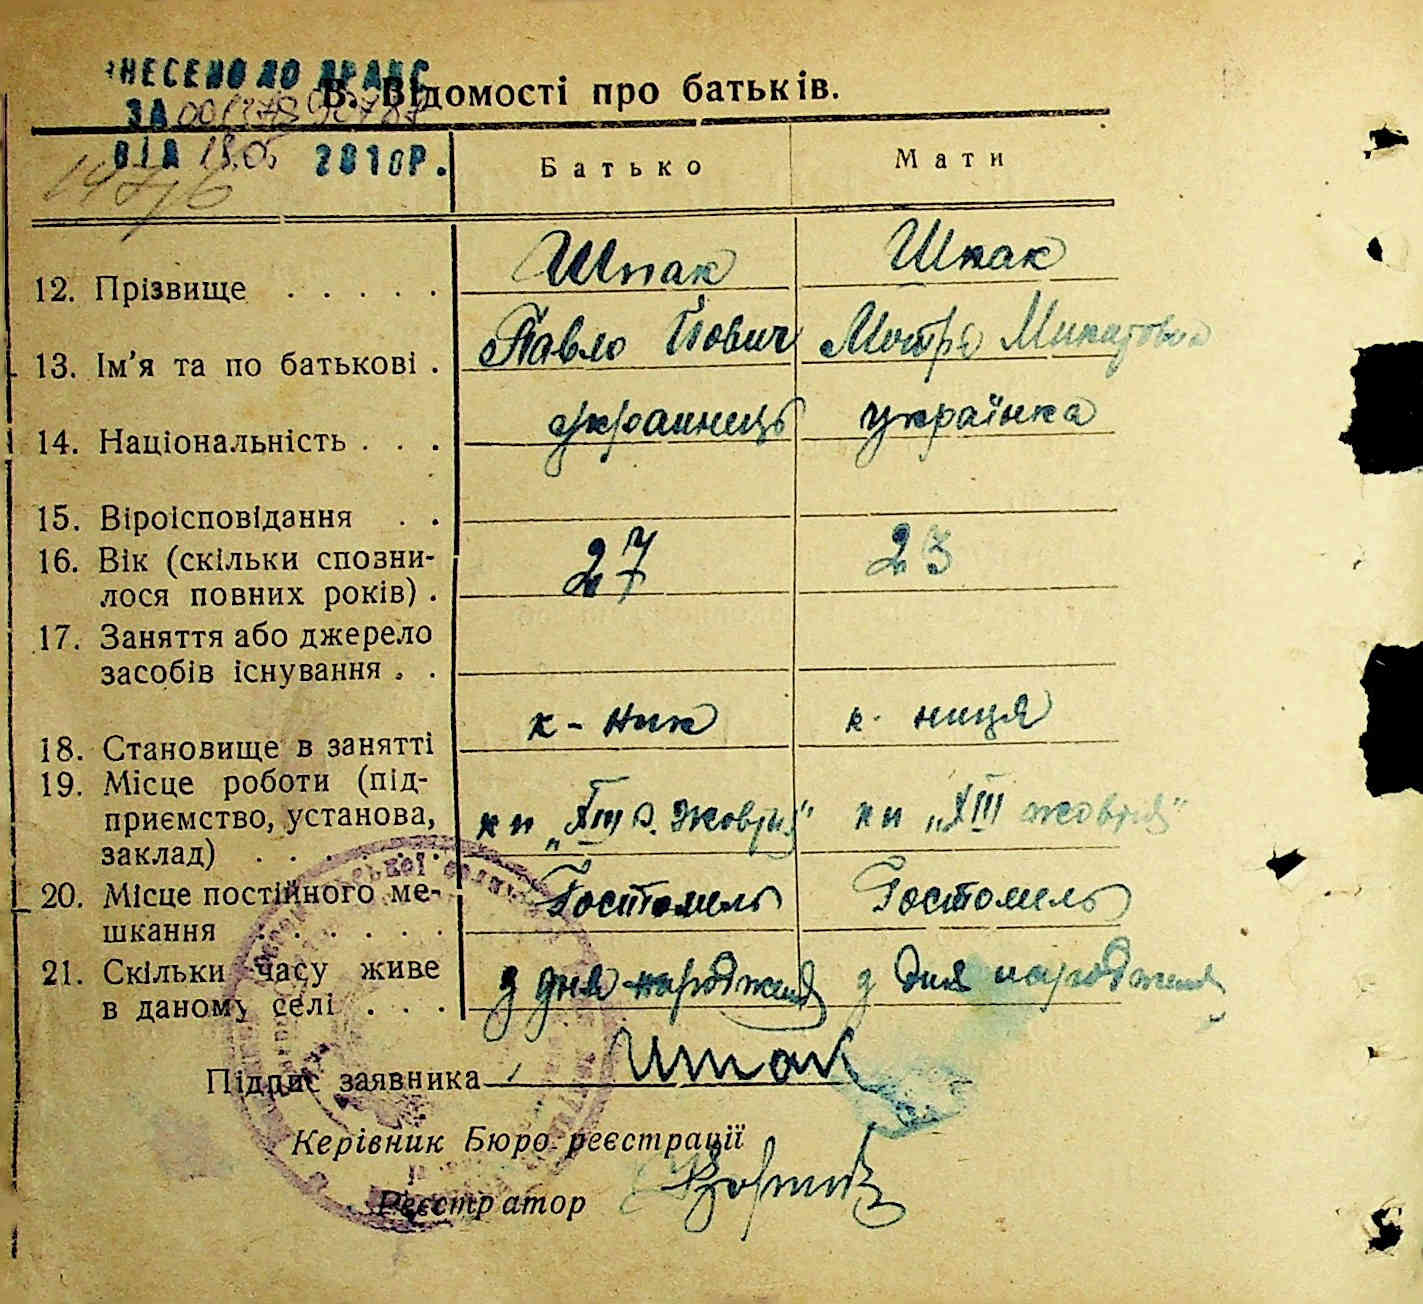 ВНЕСЕНО ДО ДРАЦС
ЗА
В. Відомості про батьків.
ВІД 2010Р.
Батько Мати
12. Прізвище . . . . . Шпак Шпак
13. Ім'я та по батькові . Павло Йович Мотря Микитовна
14. Національність . . . українець українка
15. Віроісповідання . .
16. Вік (скільки сповни-
лося повних років) . 27 23
17. Заняття або джерело
засобів існування . .
18. Становище в занятті к-ник к-ниця
19. Місце роботи (під-
приємство, установа,
заклад) . . . . . . кп „XIII р. Жовтня" кп „XIII жовтня"
20. Місце постійного ме-
шкання . . . . . . Гостомель Гостомель
21. Скільки часу живе
в даному селі . . . з дня народженя з дня народженя
Підпис заявника Шпак
Керівник Бюро реєстрації
Реєстратор